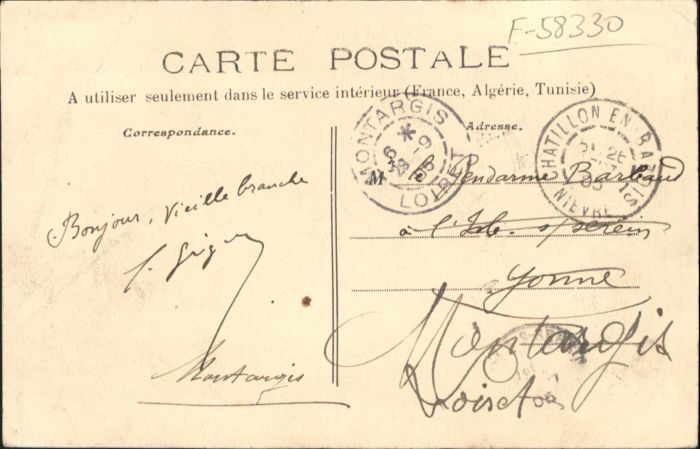 F-58330
CARTE POSTALE
A utiliser seulement dans le service intérieur (France, Algérie, Tunisie)
Correspondance.
Adresse.
MONTARGIS
LOIRET
CHATILLON EN BAZOIS
NIEVRE
M. le Gendarme Barbaud
à l'Isle s/ serein
Yonne
Montargis
Loiret
Bonjour, Vieille branche
Montargis